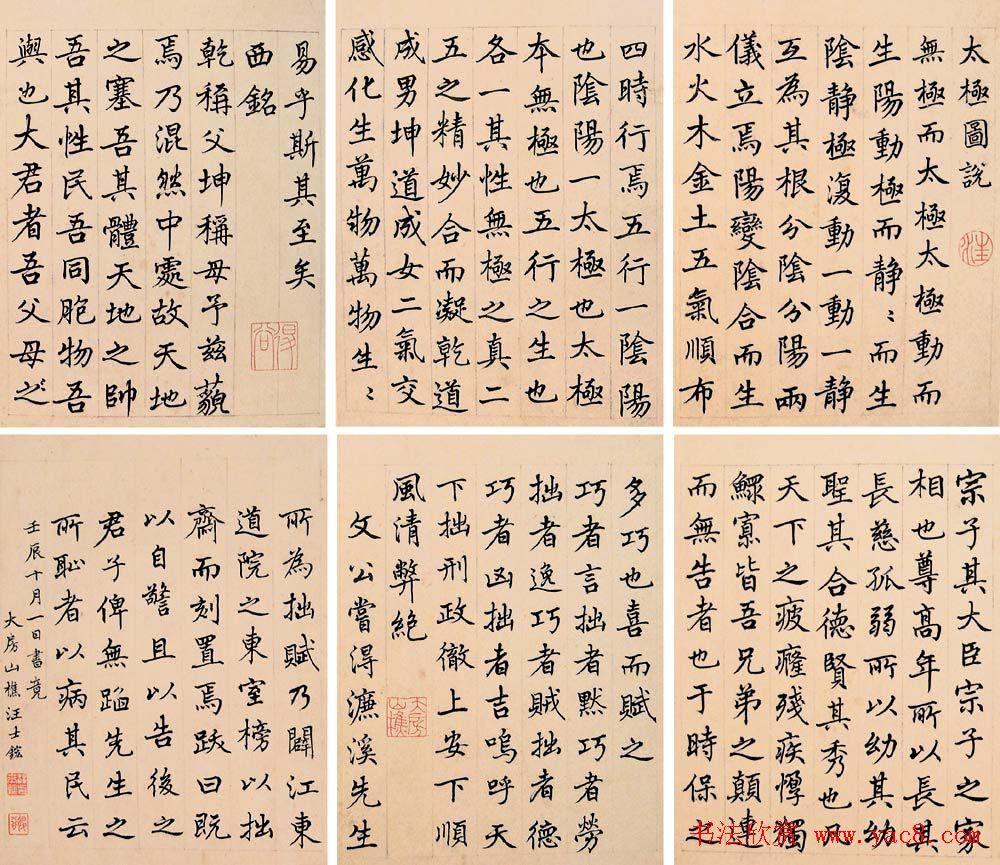 太極圖說
無極而太極太極動而
生陽動極而静〻而生
陰静極復動一動一静
互為其根分陰分陽兩
儀立焉陽變陰合而生
水火木金土五氣順布
四時行焉五行一陰陽
也陰陽一太極也太極
本無極也五行之生也
各一其性無極之真二
五之精妙合而凝乾道
成男坤道成女二氣交
感化生萬物萬物生〻
易乎斯其至矣
西銘
乾稱父坤稱母予兹藐
焉乃混然中處故天地
之塞吾其體天地之帥
吾其性民吾同胞物吾
與也大君者吾父母之
宗子其大臣宗子之家
相也尊高年所以長其
長慈孤弱所以幼其幼
聖其合德賢其秀也凡
天下之疲癃殘疾惸獨
鰥寡皆吾兄弟之顛連
而無告者也于時保之
多巧也喜而賦之
巧者言拙者默巧者勞
拙者逸巧者賊拙者德
巧者凶拙者吉嗚呼天
下拙刑政徹上安下順
風清弊絕
文公嘗得濂溪先生
所為拙賦乃闢江東
道院之東室榜以拙
齋而刻置焉跋曰既
以自警且以告後之
君子俾無蹈先生之
所恥者以病其民云
壬辰十月一日書竟
大房山樵汪士鋐
大房山樵
书法欣赏 www.yac8.com